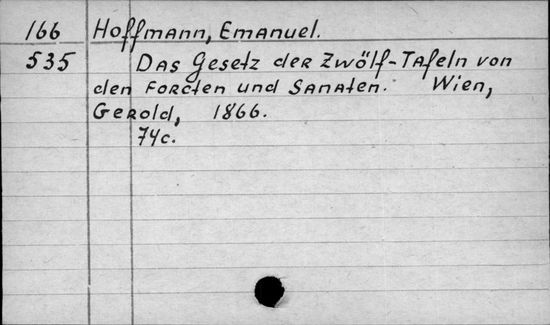 166 Hoffmann, Emanuel.
535 Das Gesetz der Zwölf-Tafeln von
den Forcten und Sanaten. Wien,
Gerold, 1866.
74c.